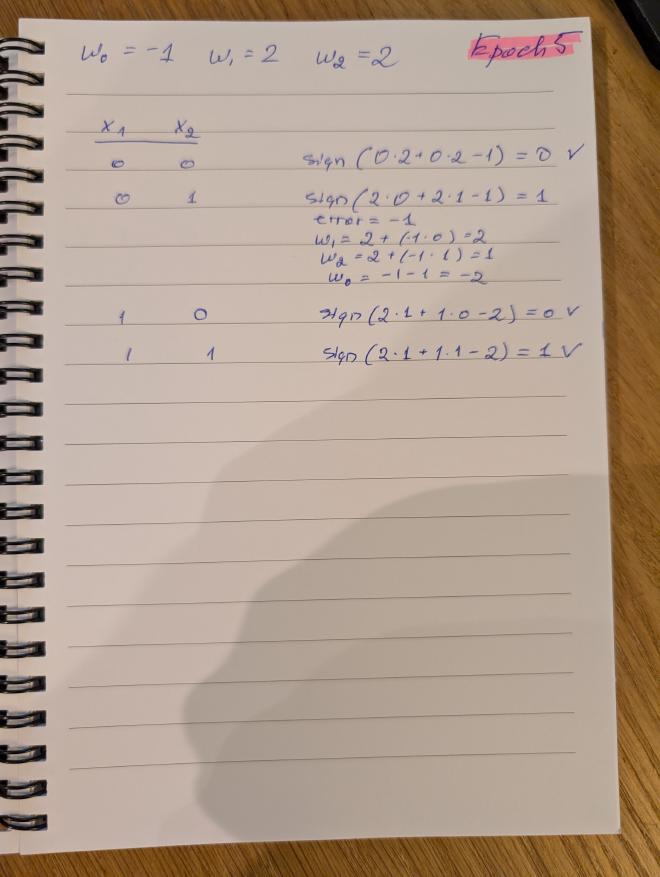 w₀ = -1 w₁ = 2 w₂ = 2 Epoch 5
x₁ x₂
0 0 sign (0·2+0·2-1) = 0 ✓
0 1 sign (2·0+2·1-1) = 1
error = -1
w₁ = 2 + (-1·0) = 2
w₂ = 2 + (-1·1) = 1
w₀ = -1-1 = -2
1 0 sign (2·1 + 1·0 - 2) = 0 ✓
1 1 sign (2·1 + 1·1 - 2) = 1 ✓